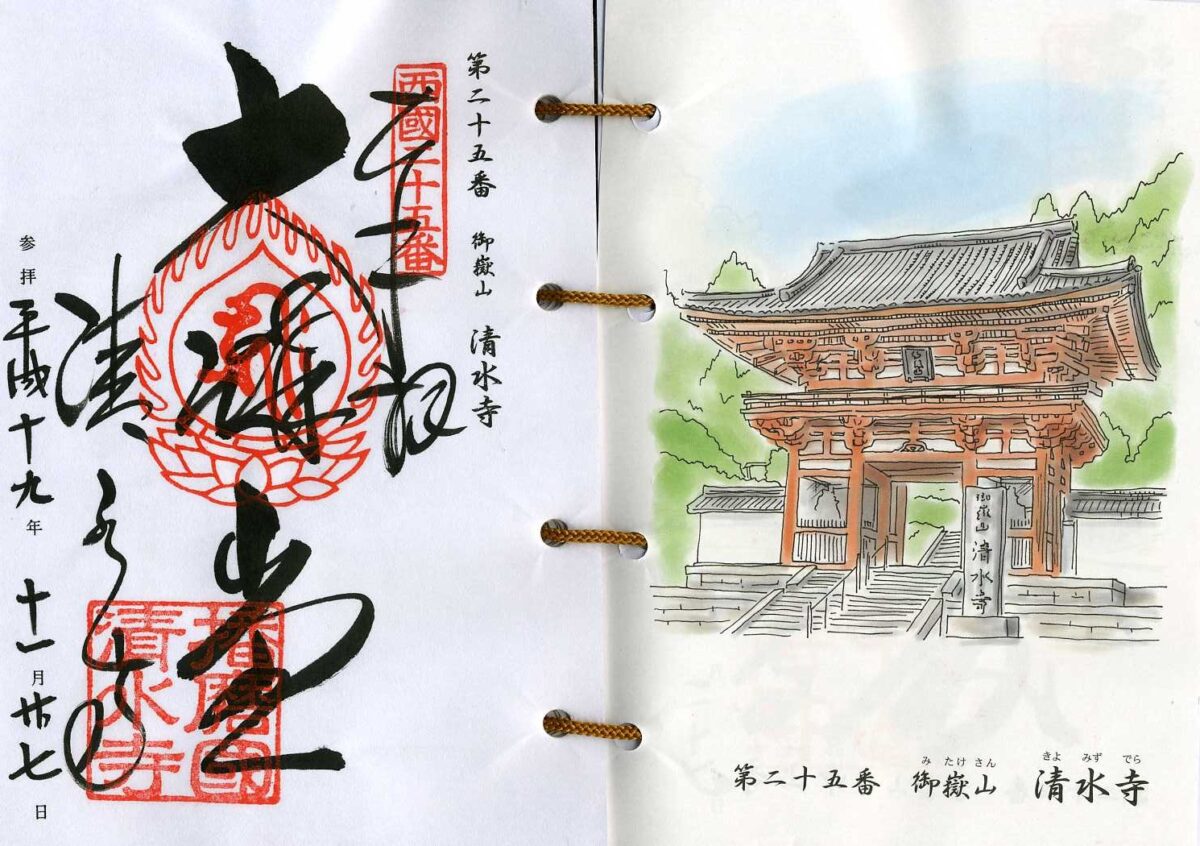 第二十五番 御嶽山 清水寺
西國二十五番
大講堂
清水寺
播磨國
清水寺
参拝 平成十九年 十一月廿七日
御嶽山 清水寺
み たけ さん きよ みず でら
第二十五番 御嶽山 清水寺